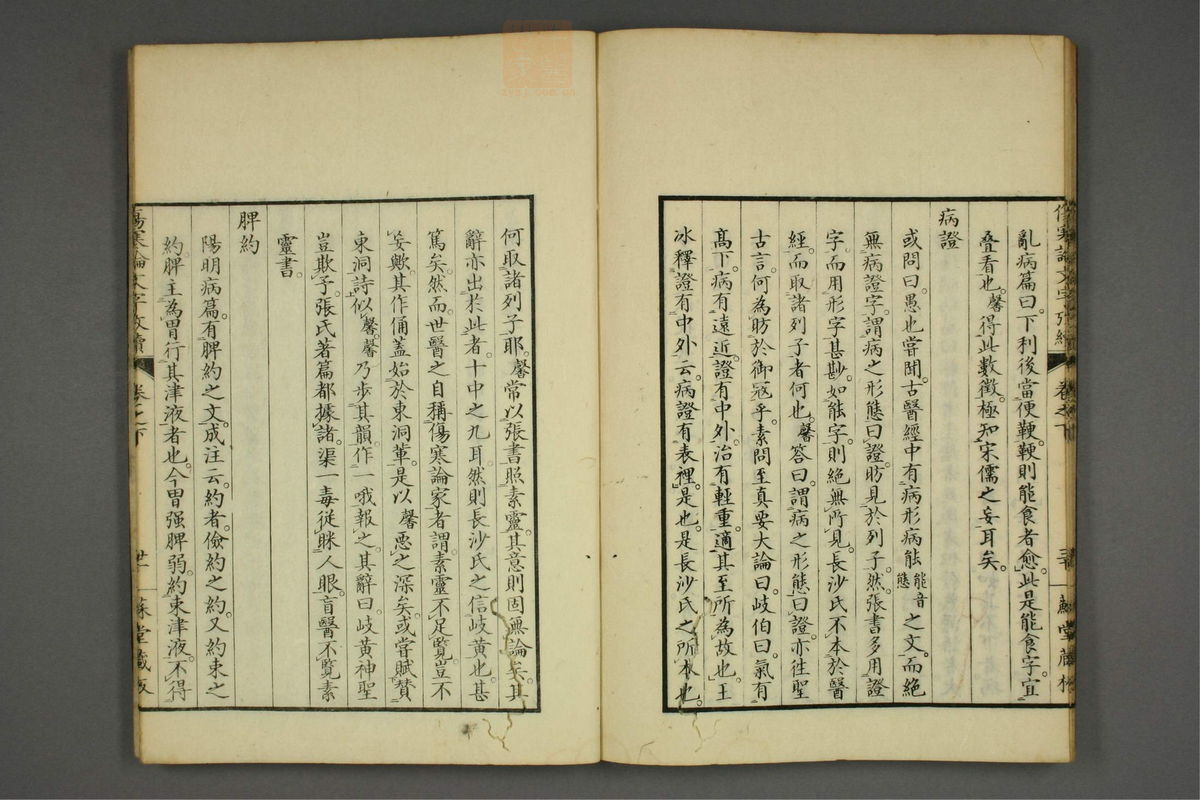 亂病篇曰。下利後當便鞕。鞕則能食者愈。此是能食字。宜
叠看也。馨得此數徵。極知宋儒之妄耳矣。
病證
或問曰。愚也嘗閱古醫經中有病形病能能音態之文。而絕
無病證字。謂病之形態曰證。昉見於列子。然張書多用證
字。而用形字甚尠。如能字則絕無所見。長沙氏不本於醫
經。而取諸列子者何也。馨答曰。謂病之形態曰證。亦徃聖
古言。何為昉於御寇乎。素問至真要大論曰。岐伯曰。氣有
高下。病有遠近。證有中外。治有輕重。適其至所為故也。王
冰釋證有中外云。病證有表裡。是也。是長沙氏之所本也。
何取諸列子耶。馨常以張書照素靈。其意則固無論矣。其
辭亦出於此者。十中之九耳。然則長沙氏之信岐黄也。甚
篤矣。然而世醫之自稱傷寒論家者。謂素靈不足覽。豈不
妄歟。其作俑蓋始於東洞輩。是以馨惡之深矣。或嘗賦贊
東洞詩。似馨。馨乃步其韻。作一哦報之。其辭曰。岐黄神聖
豈欺予。張氏著篇都據諸。渠一毒從眯人眼。盲醫不覽素
靈書。
脾約
陽明病篇。有脾約之文。成注云。約者。儉約之約。又約束之
約。脾主為胃行其津液者也。今胃强脾弱。約束津液。不得
傷寒論文字攷續
卷之下
卷之下